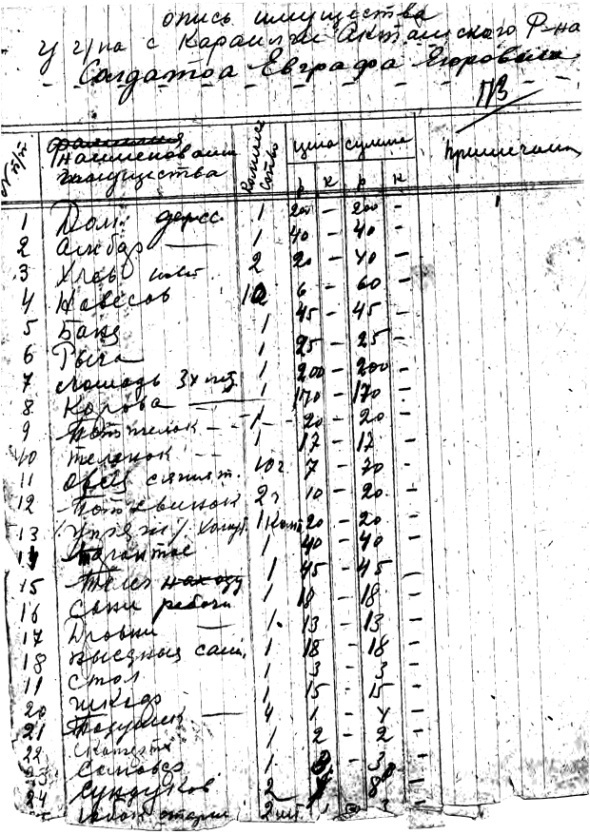 опись имущества
у гр-на с Караилги Акташского Р-на
Солдатоа Евграфа Егоровича
№ п/п наименован имущества количество цена сумма примечание
р к р к
1 Дом дерев 1 200 – 200 –
2 Амбар 1 40 – 40 –
3 Хлев 2 20 – 40 –
4 Навесов 10 6 – 60 –
5 Баня 1 45 – 45 –
6 1 25 – 25 –
7 лошадь 3х лет 1 200 – 200 –
8 Корова 1 170 – 170 –
9 1 20 – 20 –
10 теленок 1 17 – 17 –
11 Овец 10 7 – 70 –
12 2 10 – 20 –
13 Упряж / хомут 1 Комт 20 – 20 –
14 Тарантас 1 40 – 40 –
15 Телег 1 45 – 45 –
16 Сани рабочи 1 18 – 18 –
17 Дровни 1 13 – 13 –
18 выездныя сани 1 18 – 18 –
стол 1 3 3 –
20 шкаф 1 15 15 –
21 Подушек 4 1 – 4 –
22 скатерть 1 2 – 2 –
23 Самовар 1 3 –
24 сундуков 2 8
2 шт